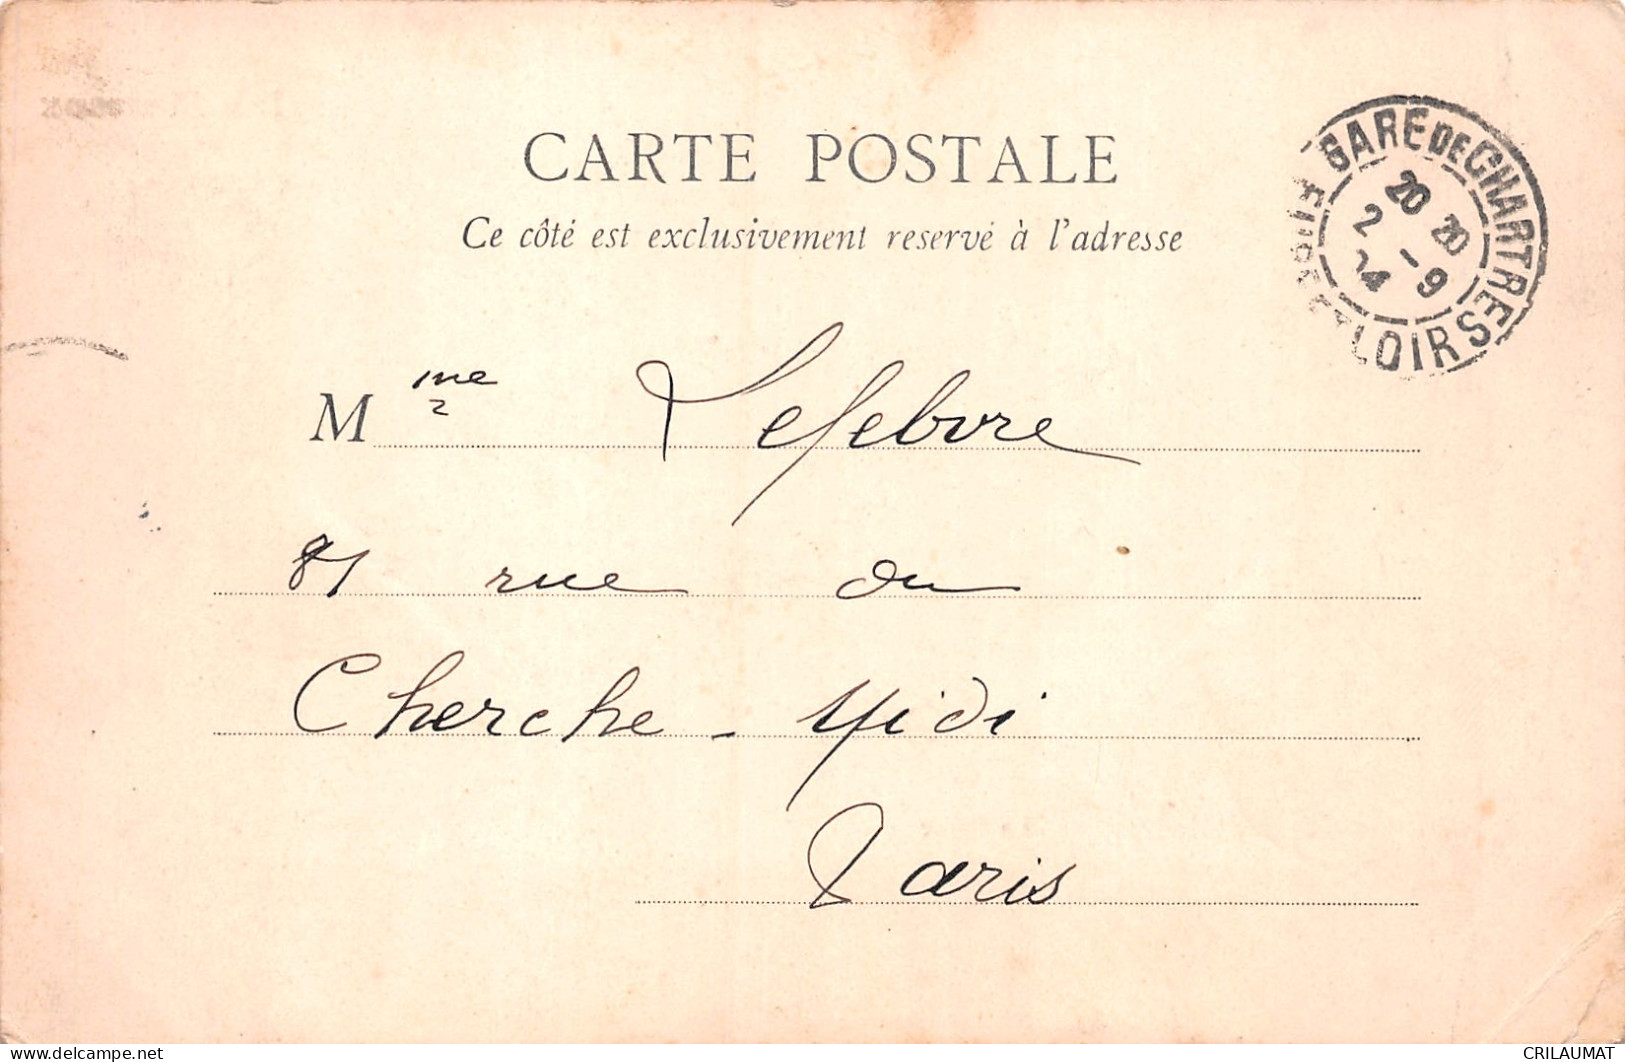 CARTE POSTALE
Ce côté est exclusivement reservé à l'adresse
GARE DE CHARTRES
EURE ET LOIR
20 20
2 - 9
04
Mme Lefebvre
81 rue du
Cherche-Midi
Paris
delcampe.net
CRILAUMAT